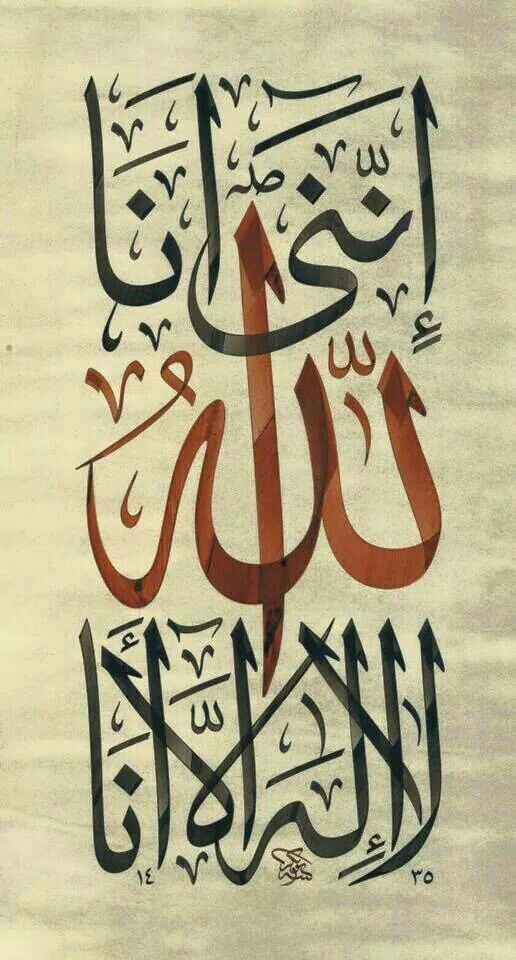 إنّنى انَا
اللّٰهُ
لا إلٰه الّا أنَا
١٤ ٣٥